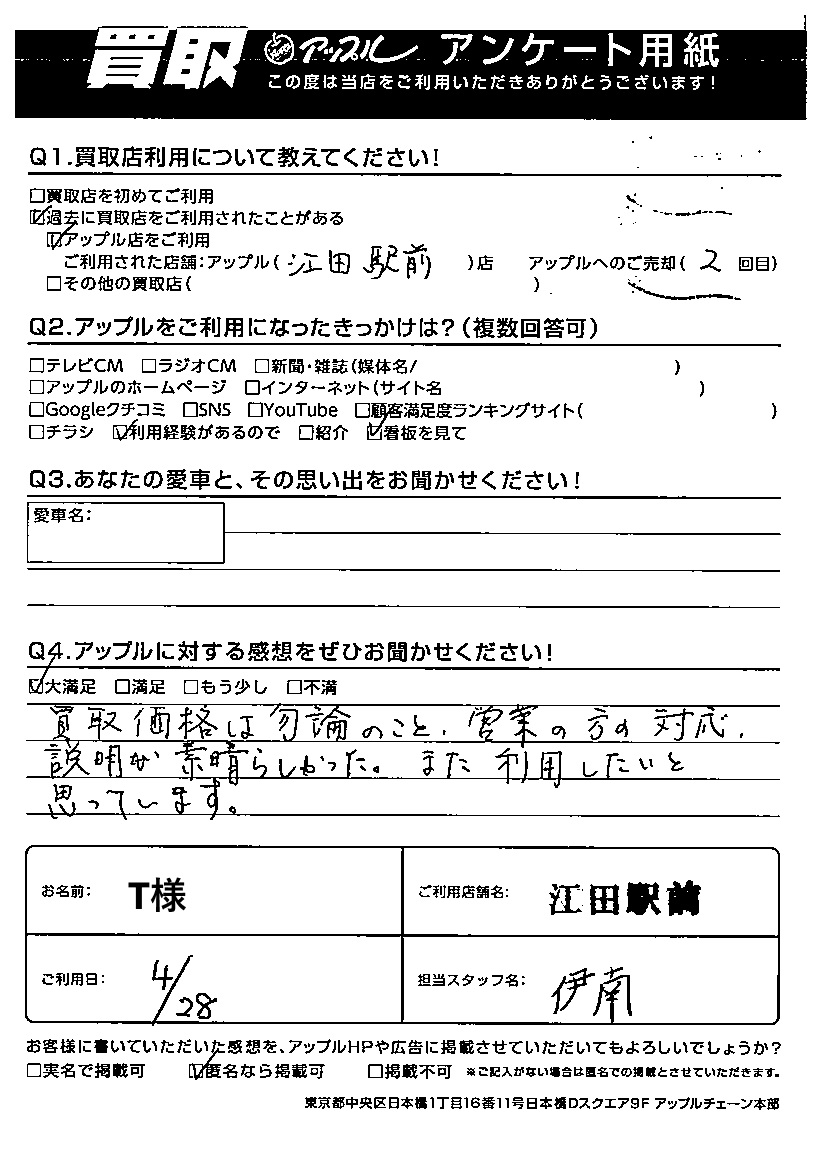 買取 アップル アンケート用紙
この度は当店をご利用いただきありがとうございます！
Q1.買取店利用について教えてください！
□買取店を初めてご利用
☑過去に買取店をご利用されたことがある
☑アップル店をご利用
ご利用された店舗：アップル（ 江田駅前 ）店 アップルへのご売却（ 2 回目）
□その他の買取店（ ）
Q2.アップルをご利用になったきっかけは？（複数回答可）
□テレビCM □ラジオCM □新聞・雑誌（媒体名/ ）
□アップルのホームページ □インターネット（サイト名 ）
□Googleクチコミ □SNS □YouTube □顧客満足度ランキングサイト（ ）
□チラシ ☑利用経験があるので □紹介 ☑看板を見て
Q3.あなたの愛車と、その思い出をお聞かせください！
愛車名：
Q4.アップルに対する感想をぜひお聞かせください！
☑大満足 □満足 □もう少し □不満
買取価格は勿論のこと、営業の方の対応、
説明が素晴らしかった。また利用したいと
思っています。
お名前： T様 ご利用店舗名： 江田駅前
ご利用日： 4/28 担当スタッフ名： 伊南
お客様に書いていただいた感想を、アップルHPや広告に掲載させていただいてもよろしいでしょうか？
□実名で掲載可 ☑匿名なら掲載可 □掲載不可 ※ご記入がない場合は匿名での掲載とさせていただきます。
東京都中央区日本橋1丁目16番11号日本橋Dスクエア9F アップルチェーン本部